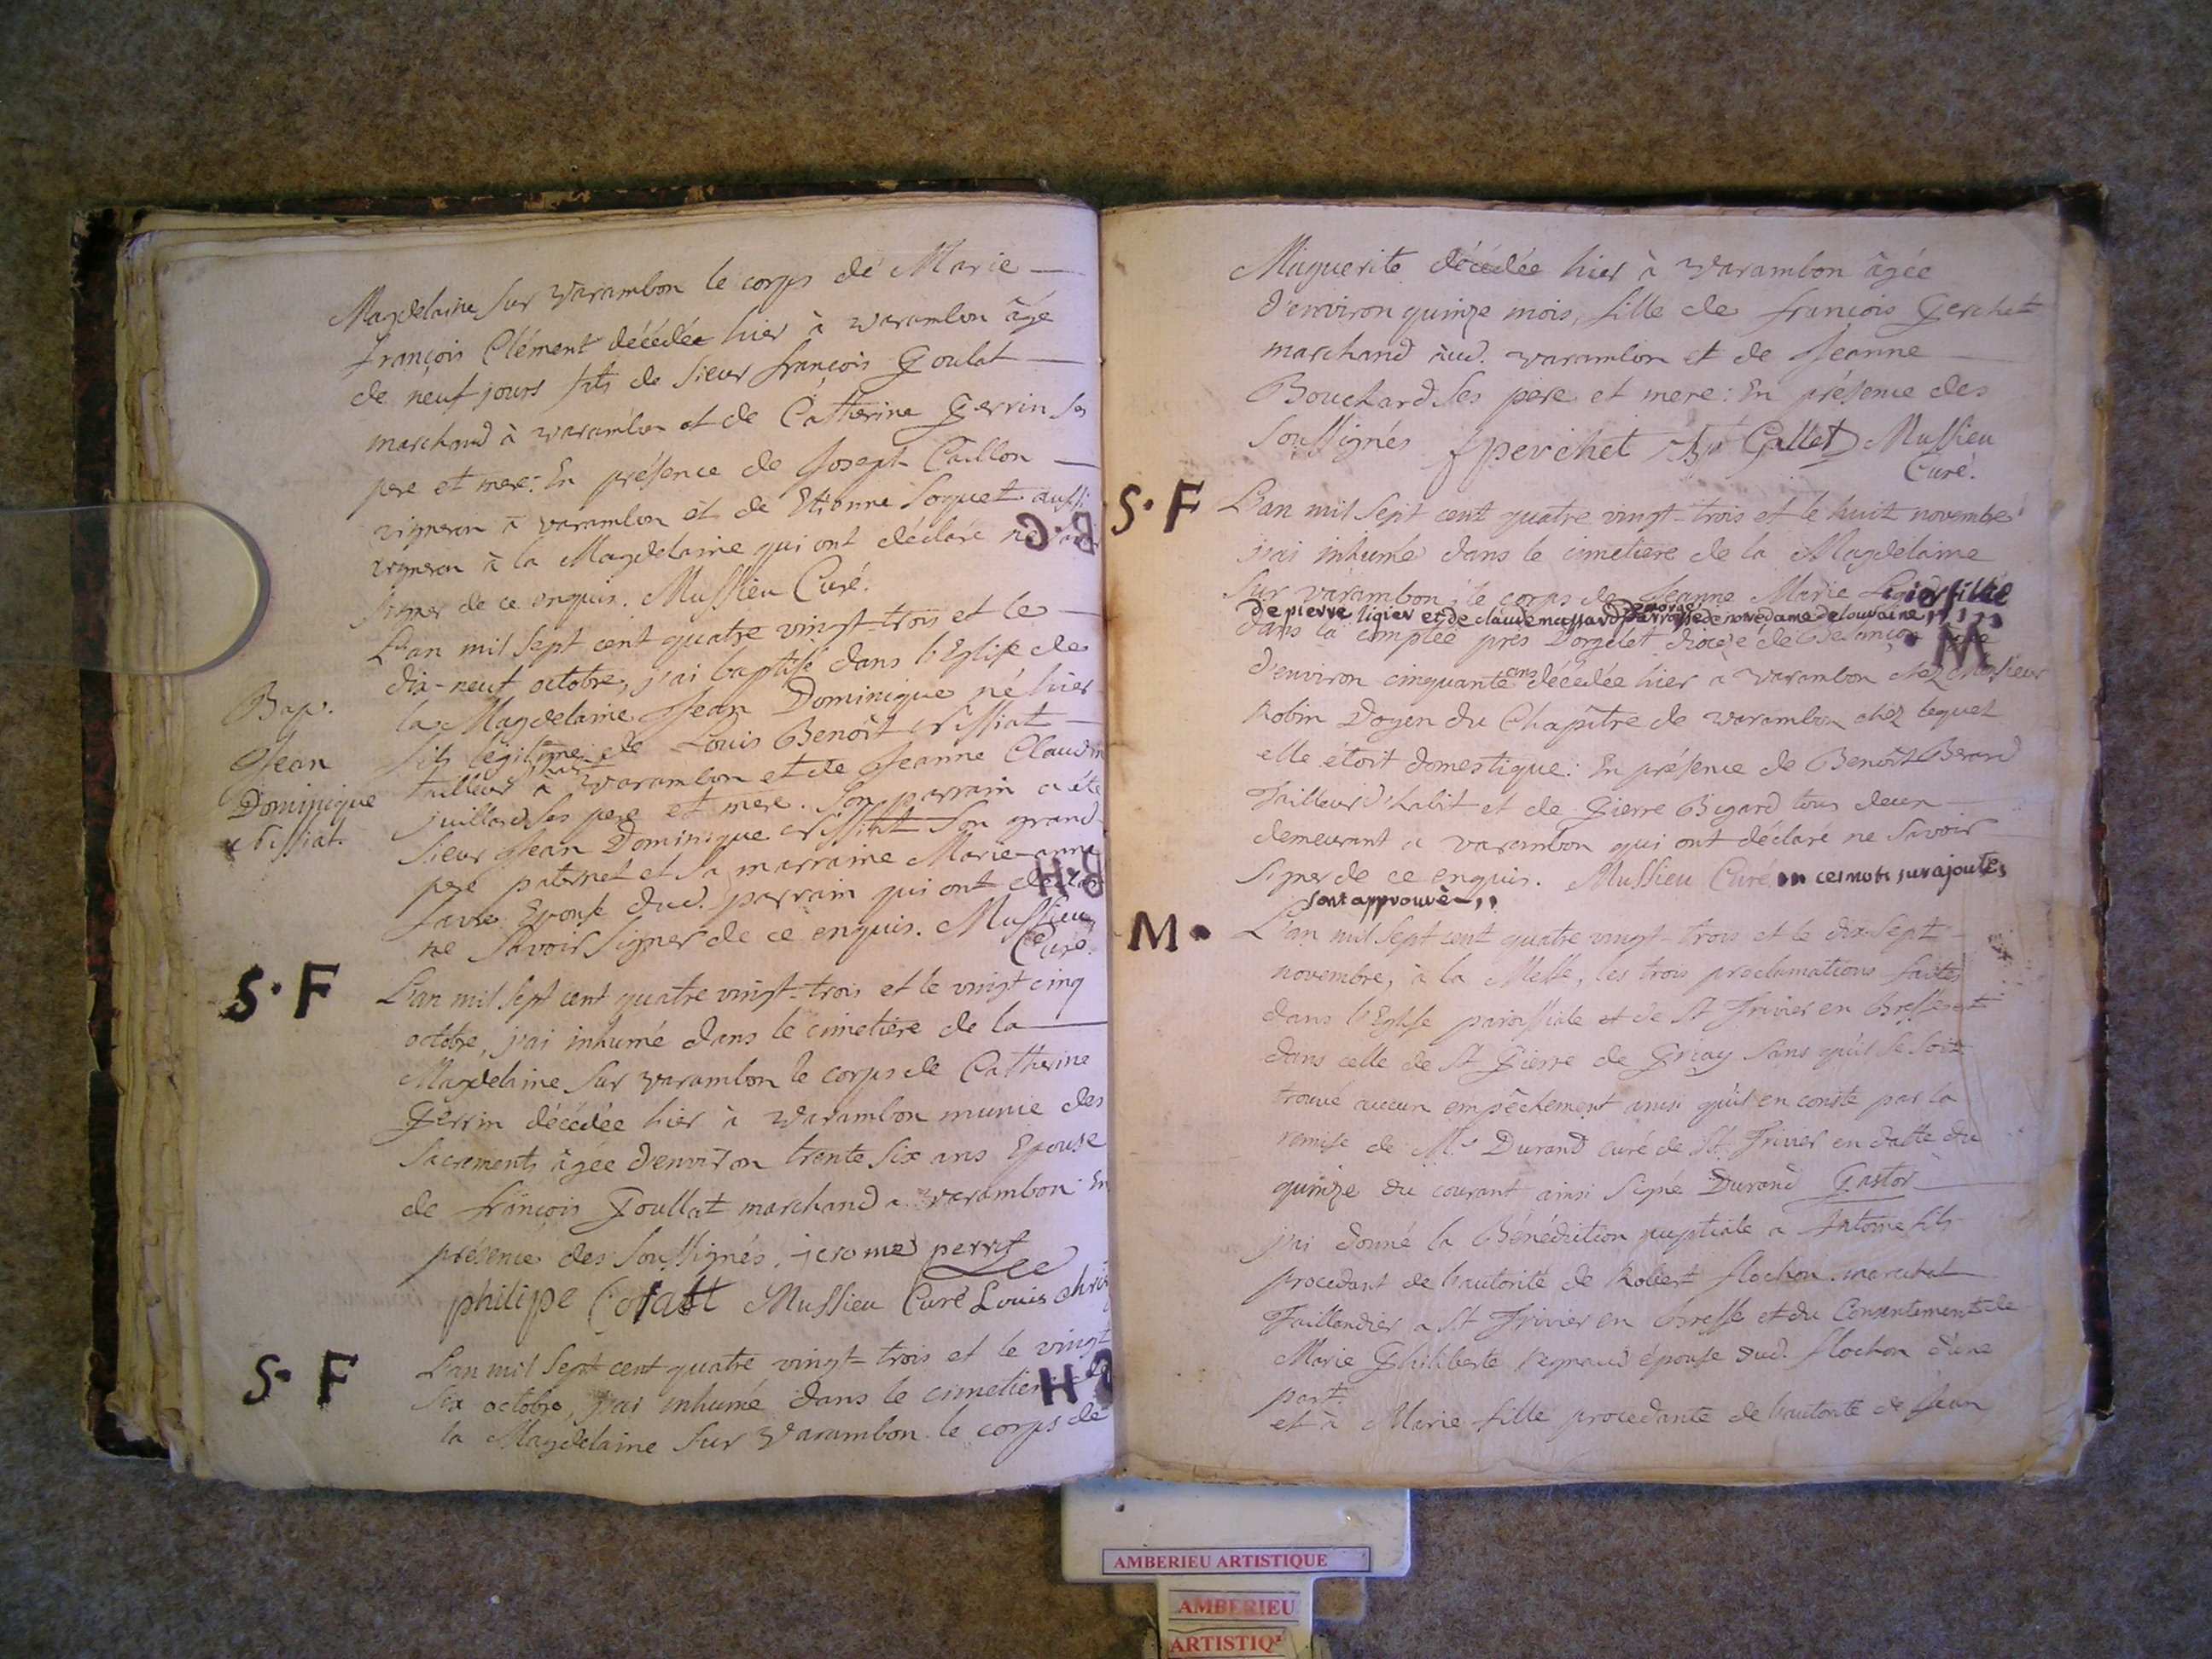 Magdelaine sur varambon le corps de Marie
françois Clément décédée hier à varambon âgé
de neuf jours fils de sieur françois Goulat
marchand à varambon et de Catherine Perrin ses
pere et mere: En présence de Joseph Caillon
vigneron à varambon et de Etienne Soquet aussi
vigneron à la Magdelaine qui ont déclaré ne
signer de ce enquis. Mussieu Curé.
L'an mil sept cent quatre vingt-trois et le
dix-neuf octobre, j'ai baptisé dans l'Eglise de
Bap. la Magdelaine Jean Dominique né hier
Jean fils légitime de Louis Benoît Nissiat
tailleur à varambon et de Jeanne Claudine
Dominique juillard ses pere et mere. Son parrain a été
Nissiat. sieur Jean Dominique Nissiat son grand
pere paternel et sa marraine Marie-anne
favre Epouse dud. parrain qui ont
ne savoir signer de ce enquis. Mussieu
Curé.
S·F L'an mil sept cent quatre vingt-trois et le vingt cinq
octobre, j'ai inhumé dans le cimetière de la
Magdelaine sur varambon le corps de Catherine
Perrin décédée hier à varambon munie des
sacrements âgée d'environ trente six ans Epouse
de françois Goullat marchand a varambon. En
présence des soussignés. jerome perret
philipe Mussieu Curé Louis
S·F L'an mil sept cent quatre vingt-trois et le vingt
six octobre, j'ai inhumé dans le cimetiere de
la Magdelaine sur varambon le corps de
Maguerite décédée hier à varambon âgée
d'environ quinze mois, fille de françois Perchet
marchand aud. varambon et de Jeanne
Bouchard ses pere et mere: En présence des
soussignés fperchet Gallet Mussieu
Curé.
S·F L'an mil sept cent quatre vingt-trois et le huit novembre
j'ai inhumé dans le cimetiere de la Magdelaine
sur varambon, le corps de Jeanne Marie Ligier fille
de pierre ligier et de claude mussard parroisse de notre dame de louvaine,,,,
dans la comptée près Dorgelet dioceze de Besançon
d'environ cinquante ans décédée hier à varambon chez Messieur
Robin Doyen du Chapître de varambon chez lequel
elle étoit domestique: En présence de Benoît Berard
Tailleur d'habit et de Pierre Bigard tous deux
demeurant a varambon qui ont déclaré ne savoir
signer de ce enquis. Mussieu Curé. ces mots surajoutes
sont approuvé,,
M. L'an mil sept cent quatre vingt-trois et le dix-sept
novembre, à la Messe, les trois proclamations faites
dans l'Eglise paroissiale et de St Trivier en Bresse et
dans celle de St Pierre de sans qu'il se soit
trouvé aucun empêchement ainsi qu'il en conste par la
remise de Mr Durand curé de St Trivier en datte du
quinze du courant ainsi signé Durand
j'ai donné la Bénédiction nuptiale a Antoine fils
procedant de l'autorité de Robert flochon marchal
Taillandier a St Trivier en Bresse et du Consentement de
Marie Philiberte Regnaud épouse dud. flochon d'une
part.
et à Marie fille procedante de l'autorité de Jean
AMBERIEU ARTISTIQUE
AMBERIEU
ARTISTIQ